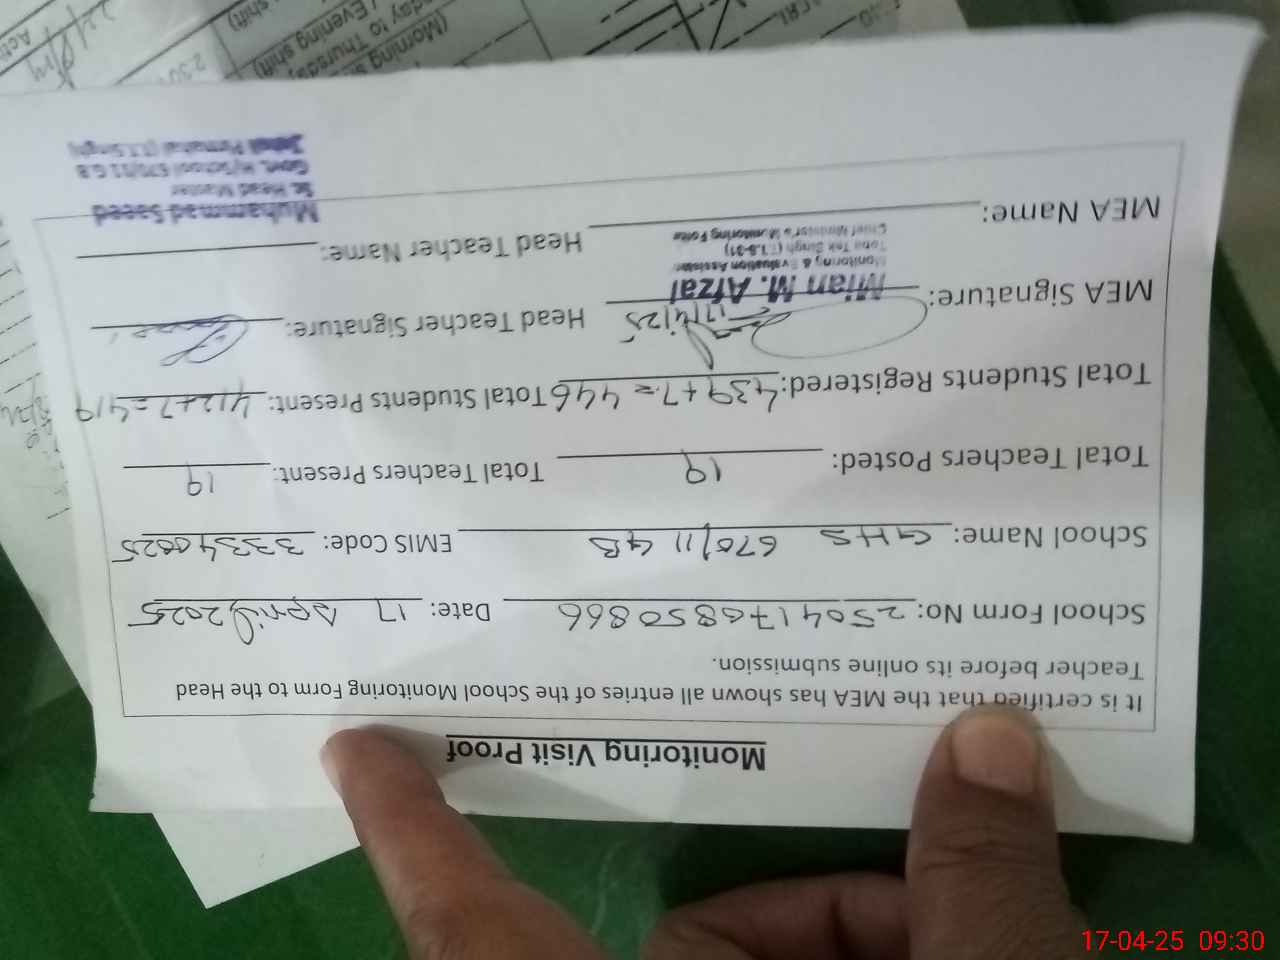 Monitoring Visit Proof
It is certified that the MEA has shown all entries of the School Monitoring Form to the Head
Teacher before its online submission.
School Form No: 250417085086​6 Date: 17 April 2025
School Name: GHS 670/11 GB EMIS Code: 33340025
Total Teachers Posted: 19 Total Teachers Present: 19
Total Students Registered: 439+7=446 Total Students Present: 412+7=419
MEA Signature: 17/4/25 Head Teacher Signature:
Mian M. Afzal
Monitoring & Evaluation Assistant
Toba Tek Singh (T.T.S-31)
Chief Minister's Monitoring Force
MEA Name: Head Teacher Name:
Muhammad Saeed
Sr. Head Master
Govt. H/School 670/11 G.B
(T.T.Singh)
(Morning
day to Thursday
/ Evening shift)
shift)
2:30
17-04-25 09:30